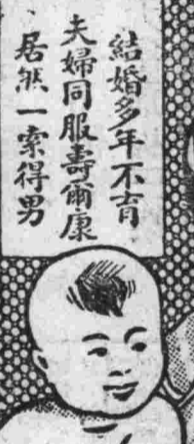 結婚多年不育
夫婦同服壽爾康
居然一索得男